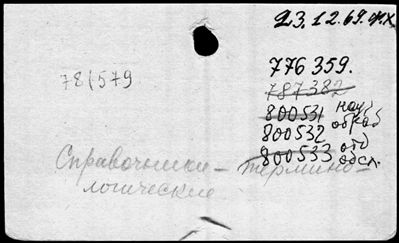 23.12.69.
781579
776 359.
787382
800531
800532
800533
Справочники – термино-
логические